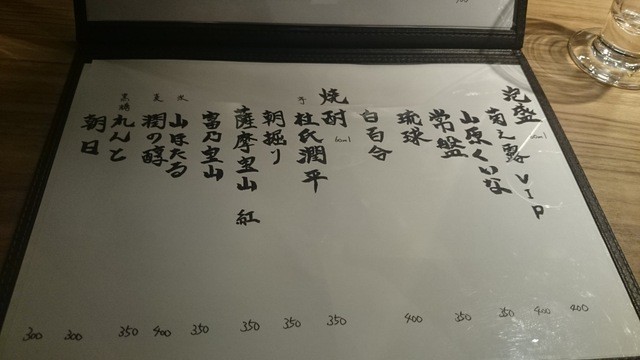 泡盛
(60ml)
菊之露VIP
400
山原くいな
400
常盤
350
琉球
350
白百合
400
焼酎
(60ml)
芋
杜氏潤平
350
朝掘り
350
薩摩宝山 紅
350
富乃宝山
350
米
山ほたる
350
麦
潤の醇
400
黒糖
れんと
350
朝日
300
300